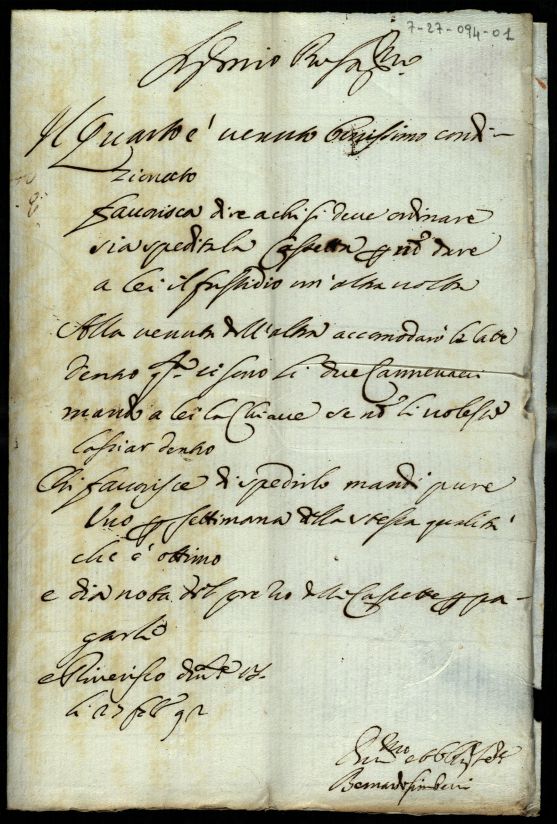 7-27-094-01
Il Quarto è venuto benissimo condi-
zionato
favorisca dire a chi si deve ordinare
sia spedita la Cassetta p nõ dare
a lei il fastidio un'altra volta
Alla venuta dell'altra accomodarò
dentro ci sono li due Cannevacci
mando a lei la Chiave se nõ li volesse
lassiar dentro
Chi favorisce di spedirlo mandi pure
Uno p settimana della stessa qualità
che è ottimo
e dia nota del prezzo delle Cassette p pa-
garlo
e Riverisco
li 27 feb 92
Bernardo